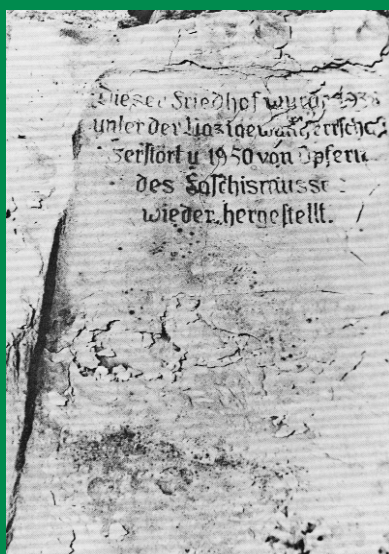 Dieser Friedhof wurde 1938
unter der Nazigewaltherrschaft
zerstört u 1950 von Opfern
des Faschismusses
wieder hergestellt.